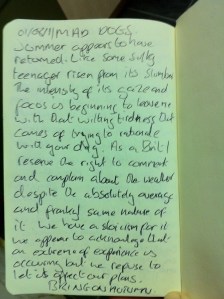 01/08/11 MAD DOGS
Summer appears to have
returned. Like some sulky
teenager risen from its slumber
The intensity of its gaze and
focus is beginning to leave me
with that wilting tiredness that
comes of trying to
with your day. As a Brit I
reserve the right to comment
and complain about the weather
despite the absolutely average
and frankly same nature of
it. We have a stoicism for it
we appear to acknowledge that
an extreme of experience is
occurring but we refuse to
let it affect our plans.
BRING ON AUTUMN